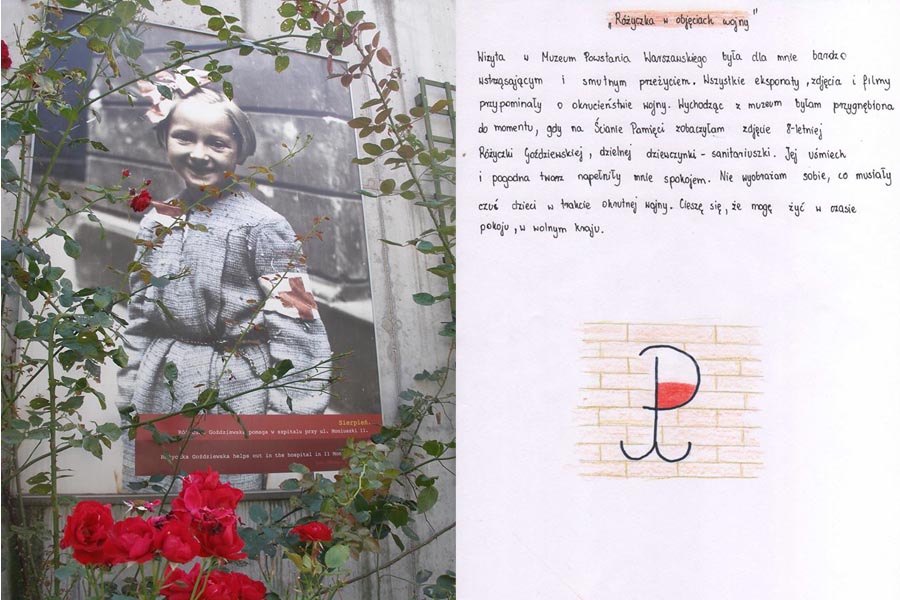 Sierpień.
Goździewska pomaga w szpitalu przy ul. Moniuszki 11.
Różyczka Goździewska helps out in the hospital in 11
„Różyczka w objęciach wojny"
Wizyta w Muzeum Powstania Warszawskiego była dla mnie bardzo
wstrząsającym i smutnym przeżyciem. Wszystkie eksponaty, zdjęcia i filmy
przypominały o okrucieństwie wojny. Wychodząc z muzeum byłam przygnębiona
do momentu, gdy na Ścianie Pamięci zobaczyłam zdjęcie 8-letniej
Różyczki Goździewskiej, dzielnej dziewczynki-sanitariuszki. Jej uśmiech
i pogodna twarz napełniły mnie spokojem. Nie wyobrażam sobie, co musiały
czuć dzieci w trakcie okrutnej wojny. Cieszę się, że mogę żyć w czasie
pokoju, w wolnym kraju.